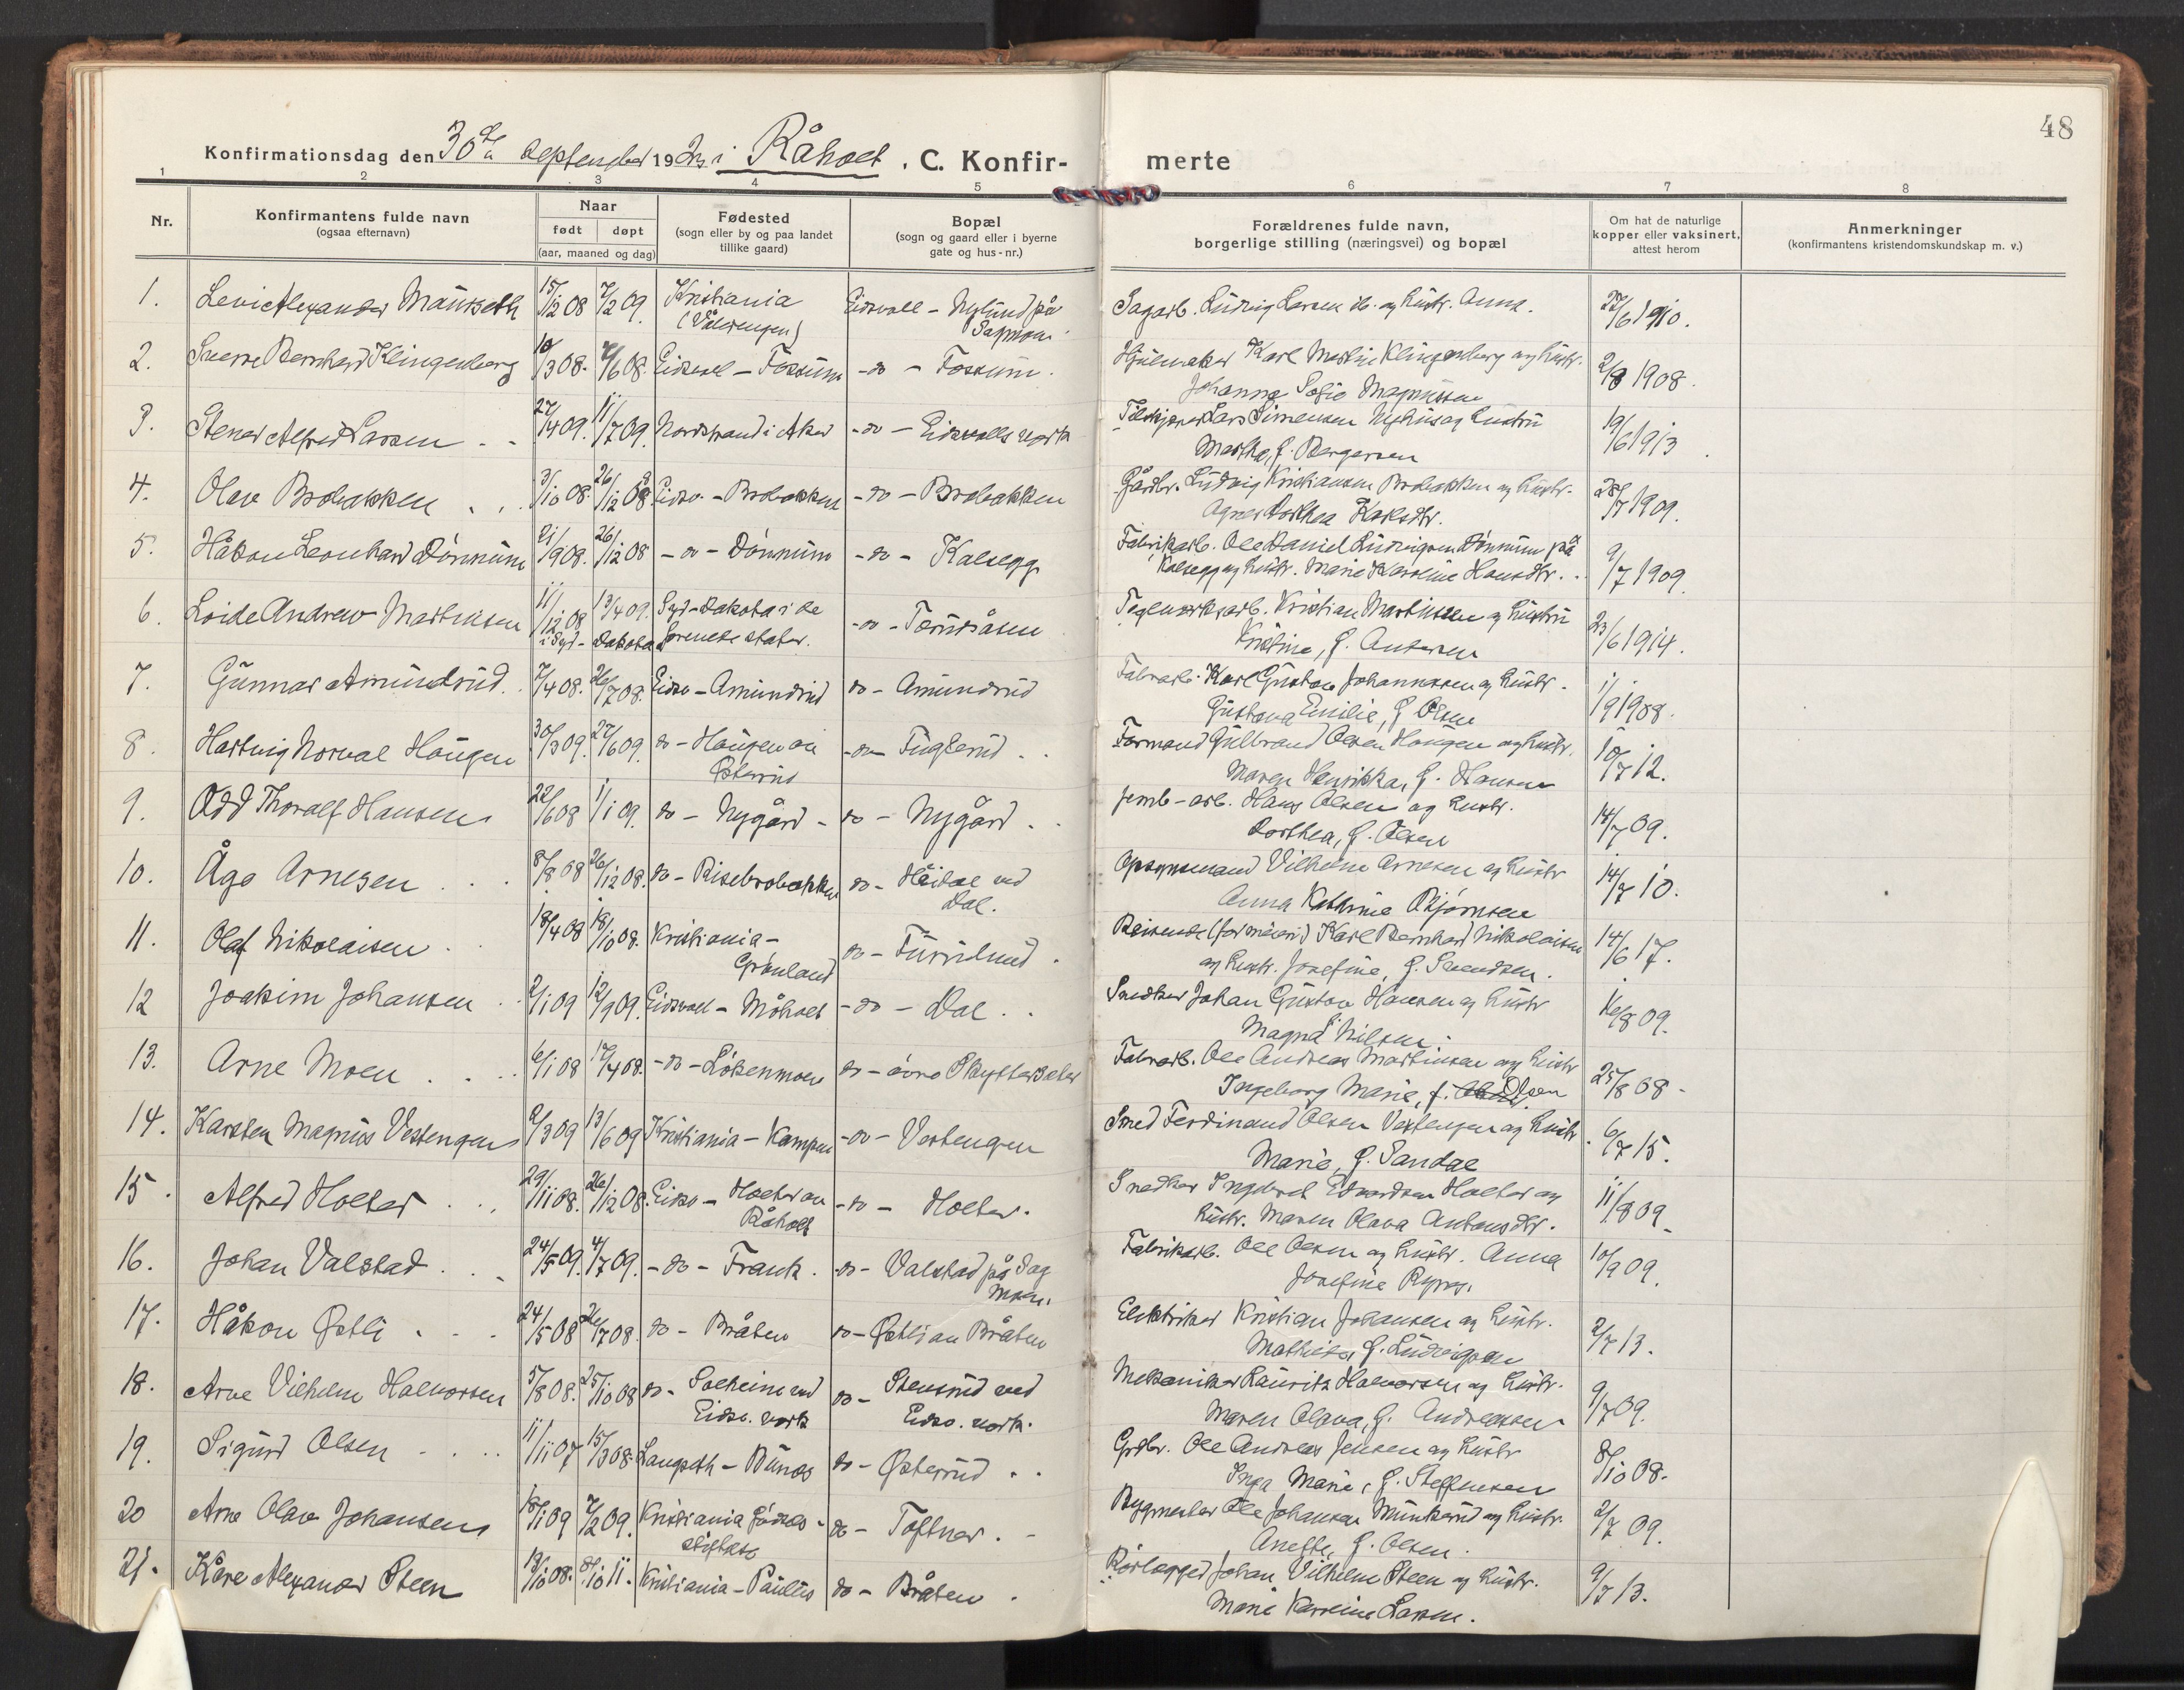 48
Konfirmationsdag den 30 september 1923 i Råholt . C. Konfir- merte
1 2 3 4 5 6 7 8
Nr.
Konfirmantens fulde navn
(ogsaa efternavn)
Naar
født døpt
(aar, maaned og dag)
Fødested
(sogn eller by og paa landet
tillike gaard)
Bopæl
(sogn og gaard eller i byerne
gate og hus-nr.)
Forældrenes fulde navn,
borgerlige stilling (næringsvei) og bopæl
Om hat de naturlige
kopper eller vaksinert,
attest herom
Anmerkninger
(konfirmantens kristendomskundskap m. v.)
1. Levi Alexander 15/12 08 7/2 09. Kristiania Eidsvoll - Nylund på Sagarb. Ludvig Larsen ib. og hustr. Anna. 22/6 1910.
(Vålerengen) Sagmoen
2. Sverre Bernhard Klingenberg 10/3 08. 7/6 08. Eidsvol - Fossum -do - Fossum. Hjulmaker Karl Martin Klingenberg og hustr. 2/8 1908.
Johanna Sofie Magnussen
3. Stener Alfred Larsen 27/4 09. 11/7 09. Nordstrand i Aker -do - Eidsvolls verk Lars Simensen Nyhus og hustru 19/6 1913
Martha, f. Bergersen
4. Olav Brobakken 3/10 08. 26/12 08. Eidsv. - Brobakken -do - Brobakken Gårdbr. Ludvig Kristiansen Brobakken og hustr. 28/7 1909.
Agnes Dorthea Karlsdtr.
5. Håkon Leonhard Dønnum 21/9 08. 26/12 08 - do - Dønnum -do - Kalsegg Fabrikarb. Ole Daniel Ludvigsen Dønnum på 9/7 1909.
Kalsegg og hustr. Marie Karoline Hansdtr.
6. Loide Andrew Martinsen 11/12 08 13/4 09. Syd-Dakota i de -do - Teglverksarb. Kristian Martinsen og hustru 23/6 1914.
i Syd- Dakota Forenede stater. Kristine, f. Andersen
7. Gunnar Amundrud 7/4 08. 26/7 08. Eidsv - Amundrud do - Amundrud Fabrarb. Karl Gustav Johannessen og hustr. 1/9 1908.
Gustava Emilie, f. Olsen
8. Hartvig Norval Haugen 30/3 09. 27/6 09. do - Haugen av -do - Fuglerud Formand Gulbrand Olsen Haugen og hustr. 10/7 12.
Østerud Maren Henrikka, f. Hansen
9. Odd Thoralf Hansen 22/6 08 1/1 09. do - Nygård - do - Nygård. Jernb-arb. Hans Olsen og hustr. 14/7 09.
Dorthea, f. Olsen
10. Åge Arnesen 8/8 08 26/12 08. do - Risebrobakken do - ved Opsynsmand Vilhelm Arnesen og hustr 14/7 10.
Dal. Anna Kathrine Bjørnsen
11. Olaf Nikolaisen 18/4 08 18/10 08. Kristiania - do - Furulund. Reisende Karl Bernhard Nikolaisen 14/6 17.
Grønland og hustr. Josefine, f. Svendsen.
12 Joakim Johansen 2/1 09 12/9 09. Eidsvoll - Møholt -do - Dal. Snedker Johan Gustav Hansen og hustr 16/8 09.
Magna Nilsen.
13. Arne Moen 6/1 08 17/4 08. -do - Løkenmoen do - øvre Skytterseter Fabrarb. Ole Andreas Martinsen og hustr 25/8 08 -
Ingeborg Marie, f. Olsen
14. Karsten Magnus Vestengen 2/3 09 13/6 09 Kristiania - Kampen -do - Vestengen Smed Ferdinand Olsen Vestengen og hustr. 6/7 15.
Marie, f. Sandal
15. Alfred Holter 29/11 08. 26/12 08. Eidsv - Holter av -do - Holter. Snedker Ingebret Edvardsen Holter og 11/8 09
Råholt hustr. Maren Olava Antonsdtr.
16. Johan Valstad 24/5 09. 4/7 09. -do - Frank. -do - Valstad på Sag Fabrikarb. Ole Olsen og hustr. Anna 10/9 09.
moen. Josefine
17. Håkon Østli 24/5 08 26/7 08. do - Bråten do - Østli av Bråten Elektriker Kristian Johansen og hustr. 2/7 13.
Mathilde, f. Ludvigsen
18. Arne Vilhelm Halvorsen 5/8 08. 25/10 08 do - Solheim ved do - Stensrud ved Mekaniker Lauritz Halvorsen og hustr. 9/7 09.
Eidsv. verk Eidsv. verk. Maren Olava, f. Andreassen
19. Sigurd Olsen 11/11 07 15/3 08. Langseth - Bunes do - Østerud Grdbr. Ole Andreas Jensen og hustr 8/10 08.
Inga Marie, f. Steffensen
20 Arne Olav Johansen 18/1 09 7/2 09. Kristiania Fødsels- do - Toftner. Bygmester Ole Johansen Munkerud og hustr. 2/7 09.
stiftelse Anette, f. Olsen.
21. Kåre Alexander Steen 19/10 08. 8/10 11. Kristiania - Paulus do - Bråten. Rørlægger Johan Vilhelm Steen og hustr. 9/7 13.
Marie Karoline Larsen.